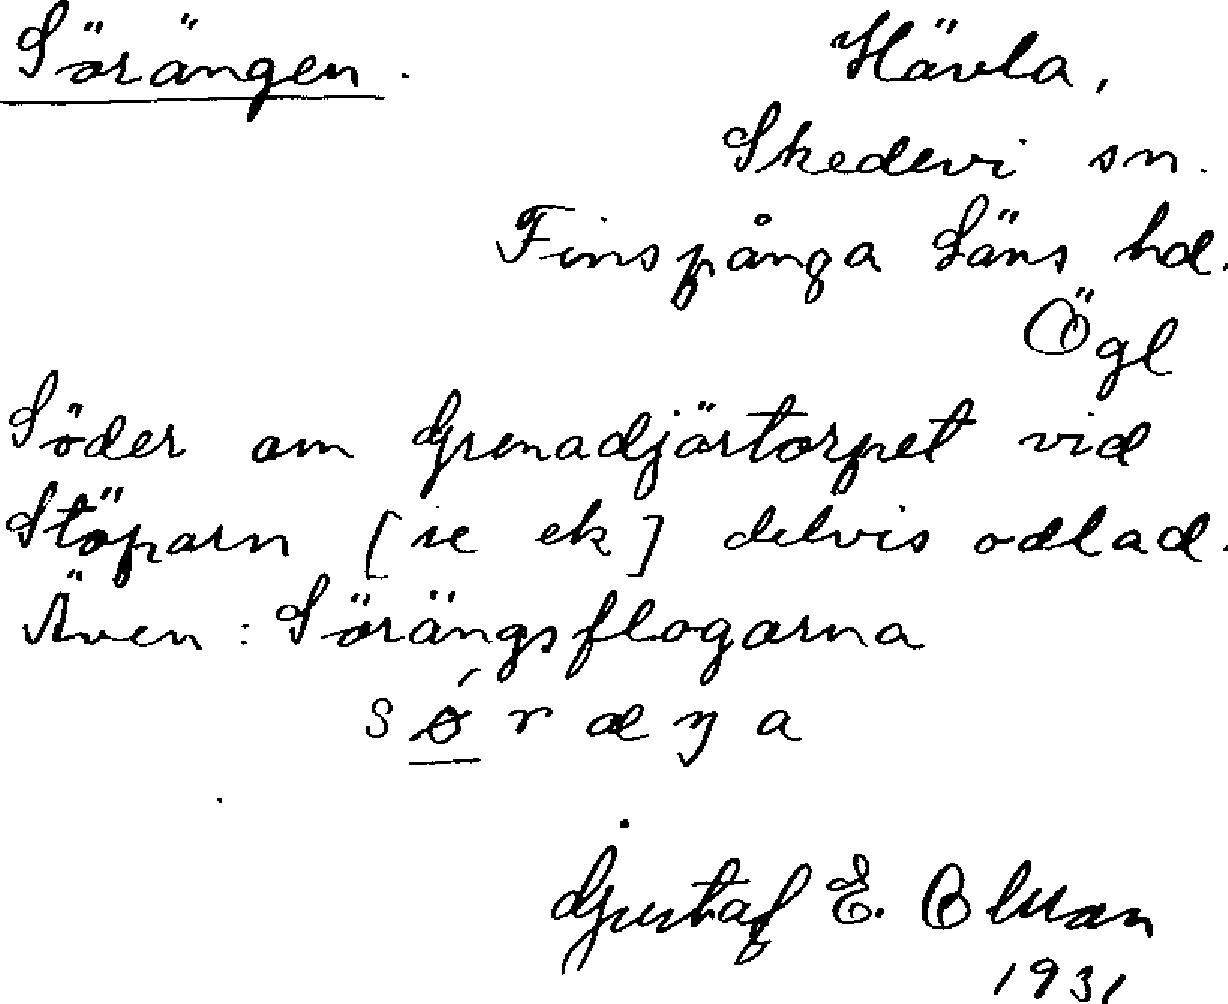 Sörängen. Hävla,
Skedevi sn.
Finspånga Läns hd.
Ögl
Söder om Grenadjärtorpet vid
Stöparn [se ek] delvis odlad.
Även: Sörängsflogarna
sǿræŋa
Gustaf E. Olsson
1931